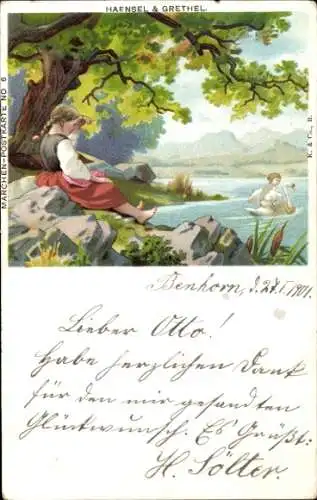 HAENSEL & GRETHEL.
MÄRCHEN-POSTKARTE NO 6
K. & Co., B.
Benhorn, d. 27. I. 1901.
Lieber Otto!
Habe herzlichen Dank
für den mir gesandten
Glückwunsch. Es Grüßt:
H. Sölter.